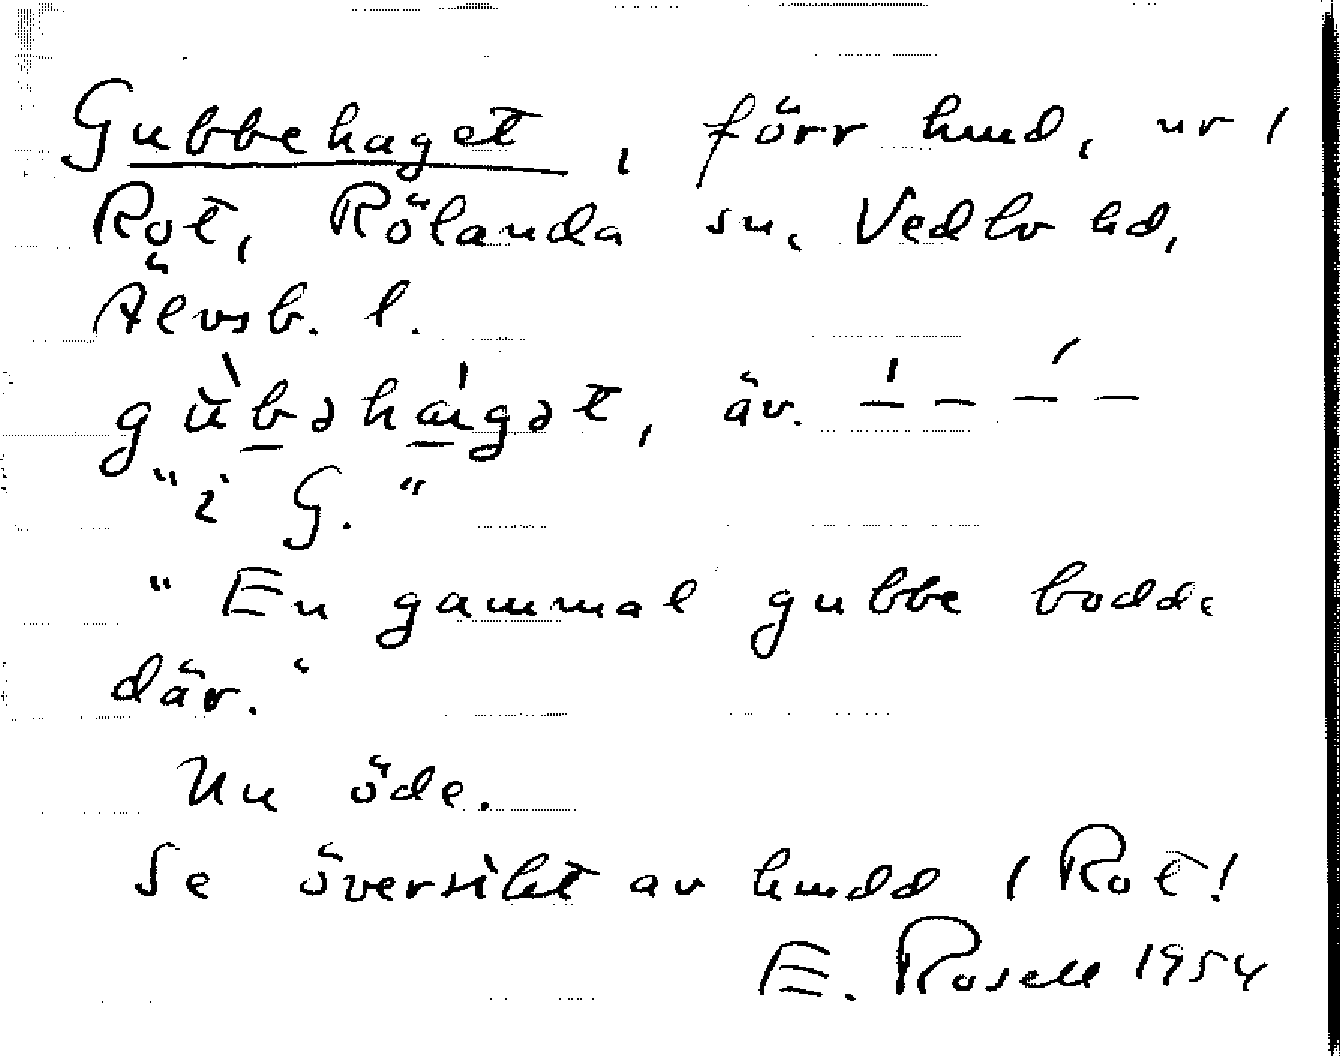 Gubbehaget, förr hmd, nr 1
Rot, Rölanda sn, Vedbo hd,
Älvsb. l.
gùbəhágət, äv. – – – –
"i G."
"En gammal gubbe bodde
där."
Nu öde.
Se översikt av hmdd / Rot!
E. Rosell 1954